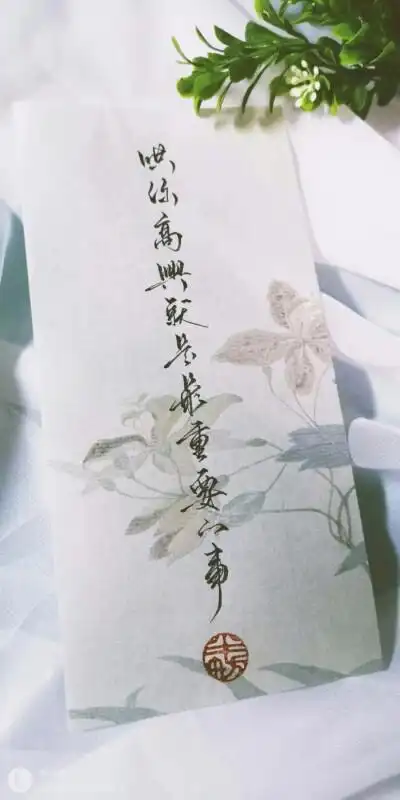 哄你高興就是最重要的事